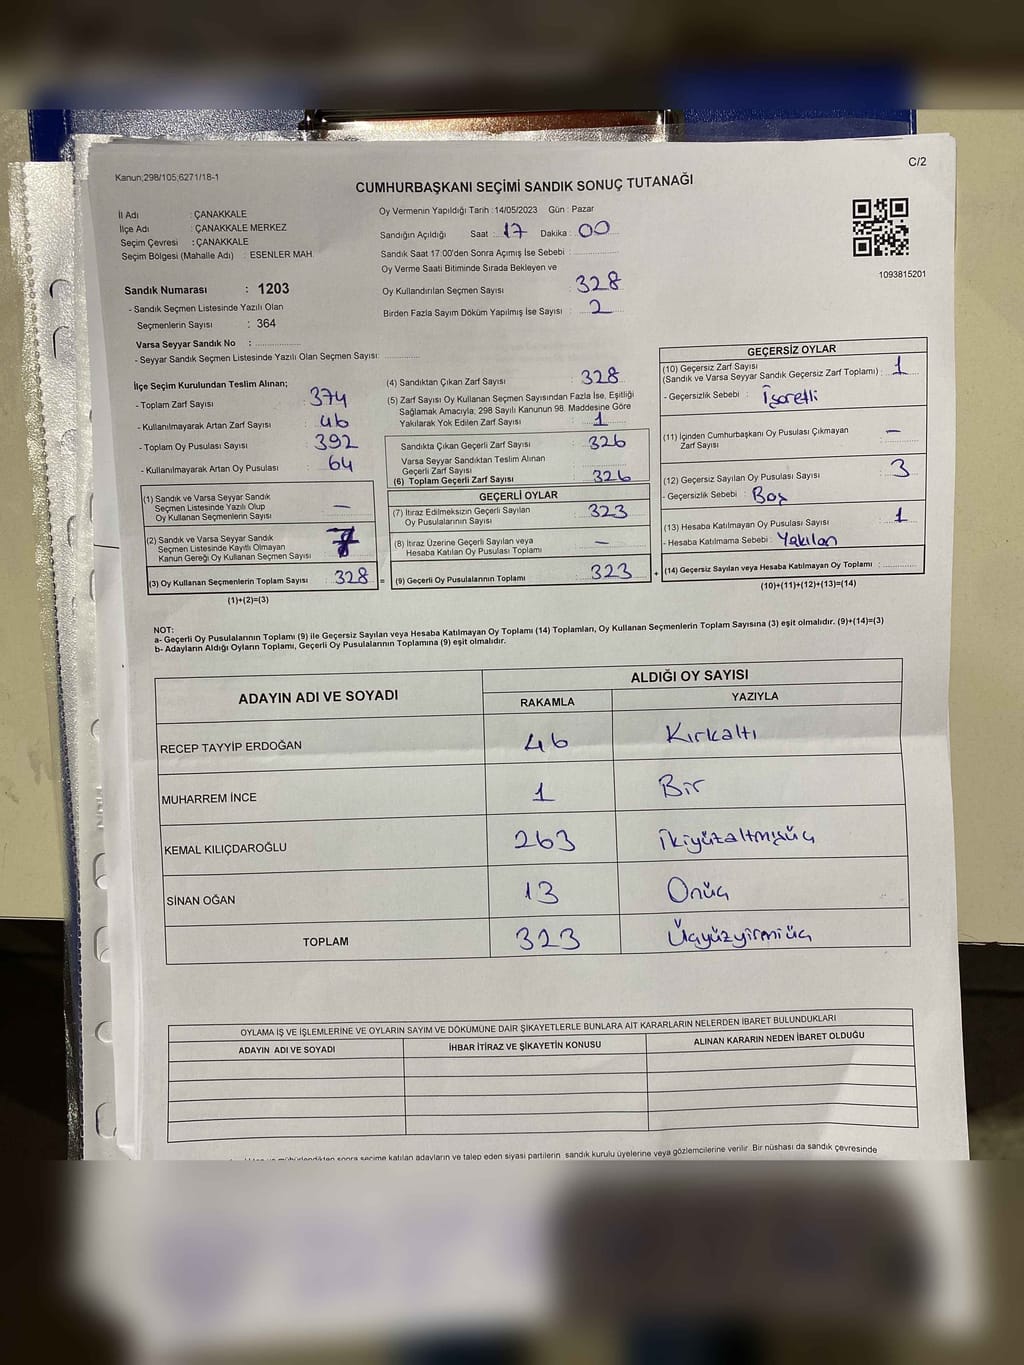 C/2
Kanun;298/105;6271/18-1
CUMHURBAŞKANI SEÇİMİ SANDIK SONUÇ TUTANAĞI
İl Adı : ÇANAKKALE
İlçe Adı : ÇANAKKALE MERKEZ
Seçim Çevresi : ÇANAKKALE
Seçim Bölgesi (Mahalle Adı) : ESENLER MAH.
Sandık Numarası : 1203
- Sandık Seçmen Listesinde Yazılı Olan
Seçmenlerin Sayısı : 364
Varsa Seyyar Sandık No :
- Seyyar Sandık Seçmen Listesinde Yazılı Olan Seçmen Sayısı:
Oy Vermenin Yapıldığı Tarih :14/05/2023 Gün : Pazar
Sandığın Açıldığı Saat : 17 Dakika : 00
Sandık Saat 17:00'den Sonra Açımış İse Sebebi :
Oy Verme Saati Bitiminde Sırada Bekleyen ve
Oy Kullandırılan Seçmen Sayısı : 328
Birden Fazla Sayım Döküm Yapılmış İse Sayısı : 2
1093815201
İlçe Seçim Kurulundan Teslim Alınan;
- Toplam Zarf Sayısı : 374
- Kullanılmayarak Artan Zarf Sayısı : 46
- Toplam Oy Pusulası Sayısı : 392
- Kullanılmayarak Artan Oy Pusulası : 64
(1) Sandık ve Varsa Seyyar Sandık
Seçmen Listesinde Yazılı Olup
Oy Kullanan Seçmenlerin Sayısı : —
(2) Sandık ve Varsa Seyyar Sandık
Seçmen Listesinde Kayıtlı Olmayan
Kanun Gereği Oy Kullanan Seçmen Sayısı :
(3) Oy Kullanan Seçmenlerin Toplam Sayısı : 328 =
(1)+(2)=(3)
(4) Sandıktan Çıkan Zarf Sayısı : 328
(5) Zarf Sayısı Oy Kullanan Seçmen Sayısından Fazla İse, Eşitliği
Sağlamak Amacıyla; 298 Sayılı Kanunun 98. Maddesine Göre
Yakılarak Yok Edilen Zarf Sayısı : 1
Sandıkta Çıkan Geçerli Zarf Sayısı : 326
Varsa Seyyar Sandıktan Teslim Alınan
Geçerli Zarf Sayısı :
(6) Toplam Geçerli Zarf Sayısı : 326
GEÇERLİ OYLAR
(7) İtiraz Edilmeksizin Geçerli Sayılan
Oy Pusulalarının Sayısı : 323
(8) İtiraz Üzerine Geçerli Sayılan veya
Hesaba Katılan Oy Pusulası Toplamı : —
(9) Geçerli Oy Pusulalarının Toplamı : 323 +
GEÇERSİZ OYLAR
(10) Geçersiz Zarf Sayısı
(Sandık ve Varsa Seyyar Sandık Geçersiz Zarf Toplamı) : 1
- Geçersizlik Sebebi : İşaretli
(11) İçinden Cumhurbaşkanı Oy Pusulası Çıkmayan
Zarf Sayısı : —
(12) Geçersiz Sayılan Oy Pusulası Sayısı : 3
- Geçersizlik Sebebi : Boş
(13) Hesaba Katılmayan Oy Pusulası Sayısı : 1
- Hesaba Katılmama Sebebi : Yakılan
(14) Geçersiz Sayılan veya Hesaba Katılmayan Oy Toplamı :
(10)+(11)+(12)+(13)=(14)
NOT:
a- Geçerli Oy Pusulalarının Toplamı (9) ile Geçersiz Sayılan veya Hesaba Katılmayan Oy Toplamı (14) Toplamları, Oy Kullanan Seçmenlerin Toplam Sayısına (3) eşit olmalıdır. (9)+(14)=(3)
b- Adayların Aldığı Oyların Toplamı, Geçerli Oy Pusulalarının Toplamına (9) eşit olmalıdır.
ADAYIN ADI VE SOYADI
ALDIĞI OY SAYISI
RAKAMLA YAZIYLA
RECEP TAYYİP ERDOĞAN 46 Kırkaltı
MUHARREM İNCE 1 Bir
KEMAL KILIÇDAROĞLU 263 İkiyüzaltmışüç
SİNAN OĞAN 13 Onüç
TOPLAM 323 Üçyüzyirmiüç
OYLAMA İŞ VE İŞLEMLERİNE VE OYLARIN SAYIM VE DÖKÜMÜNE DAİR ŞİKAYETLERLE BUNLARA AİT KARARLARIN NELERDEN İBARET BULUNDUKLARI
ADAYIN ADI VE SOYADI İHBAR İTİRAZ VE ŞİKAYETİN KONUSU ALINAN KARARIN NEDEN İBARET OLDUĞU
sonra seçime katılan adayların ve talep eden siyasi partilerin sandık kurulu üyelerine veya gözlemcilerine verilir. Bir nüshası da sandık çevresinde